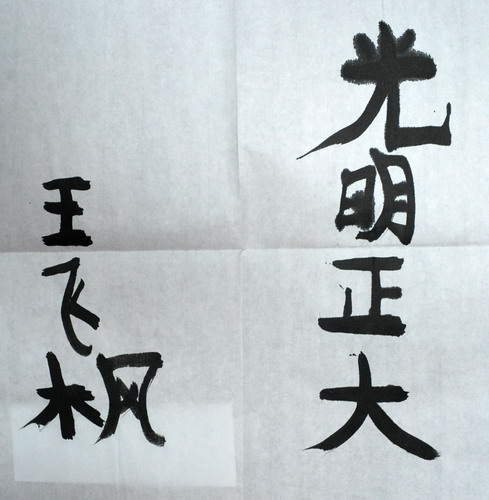 光明正大
王飞枫